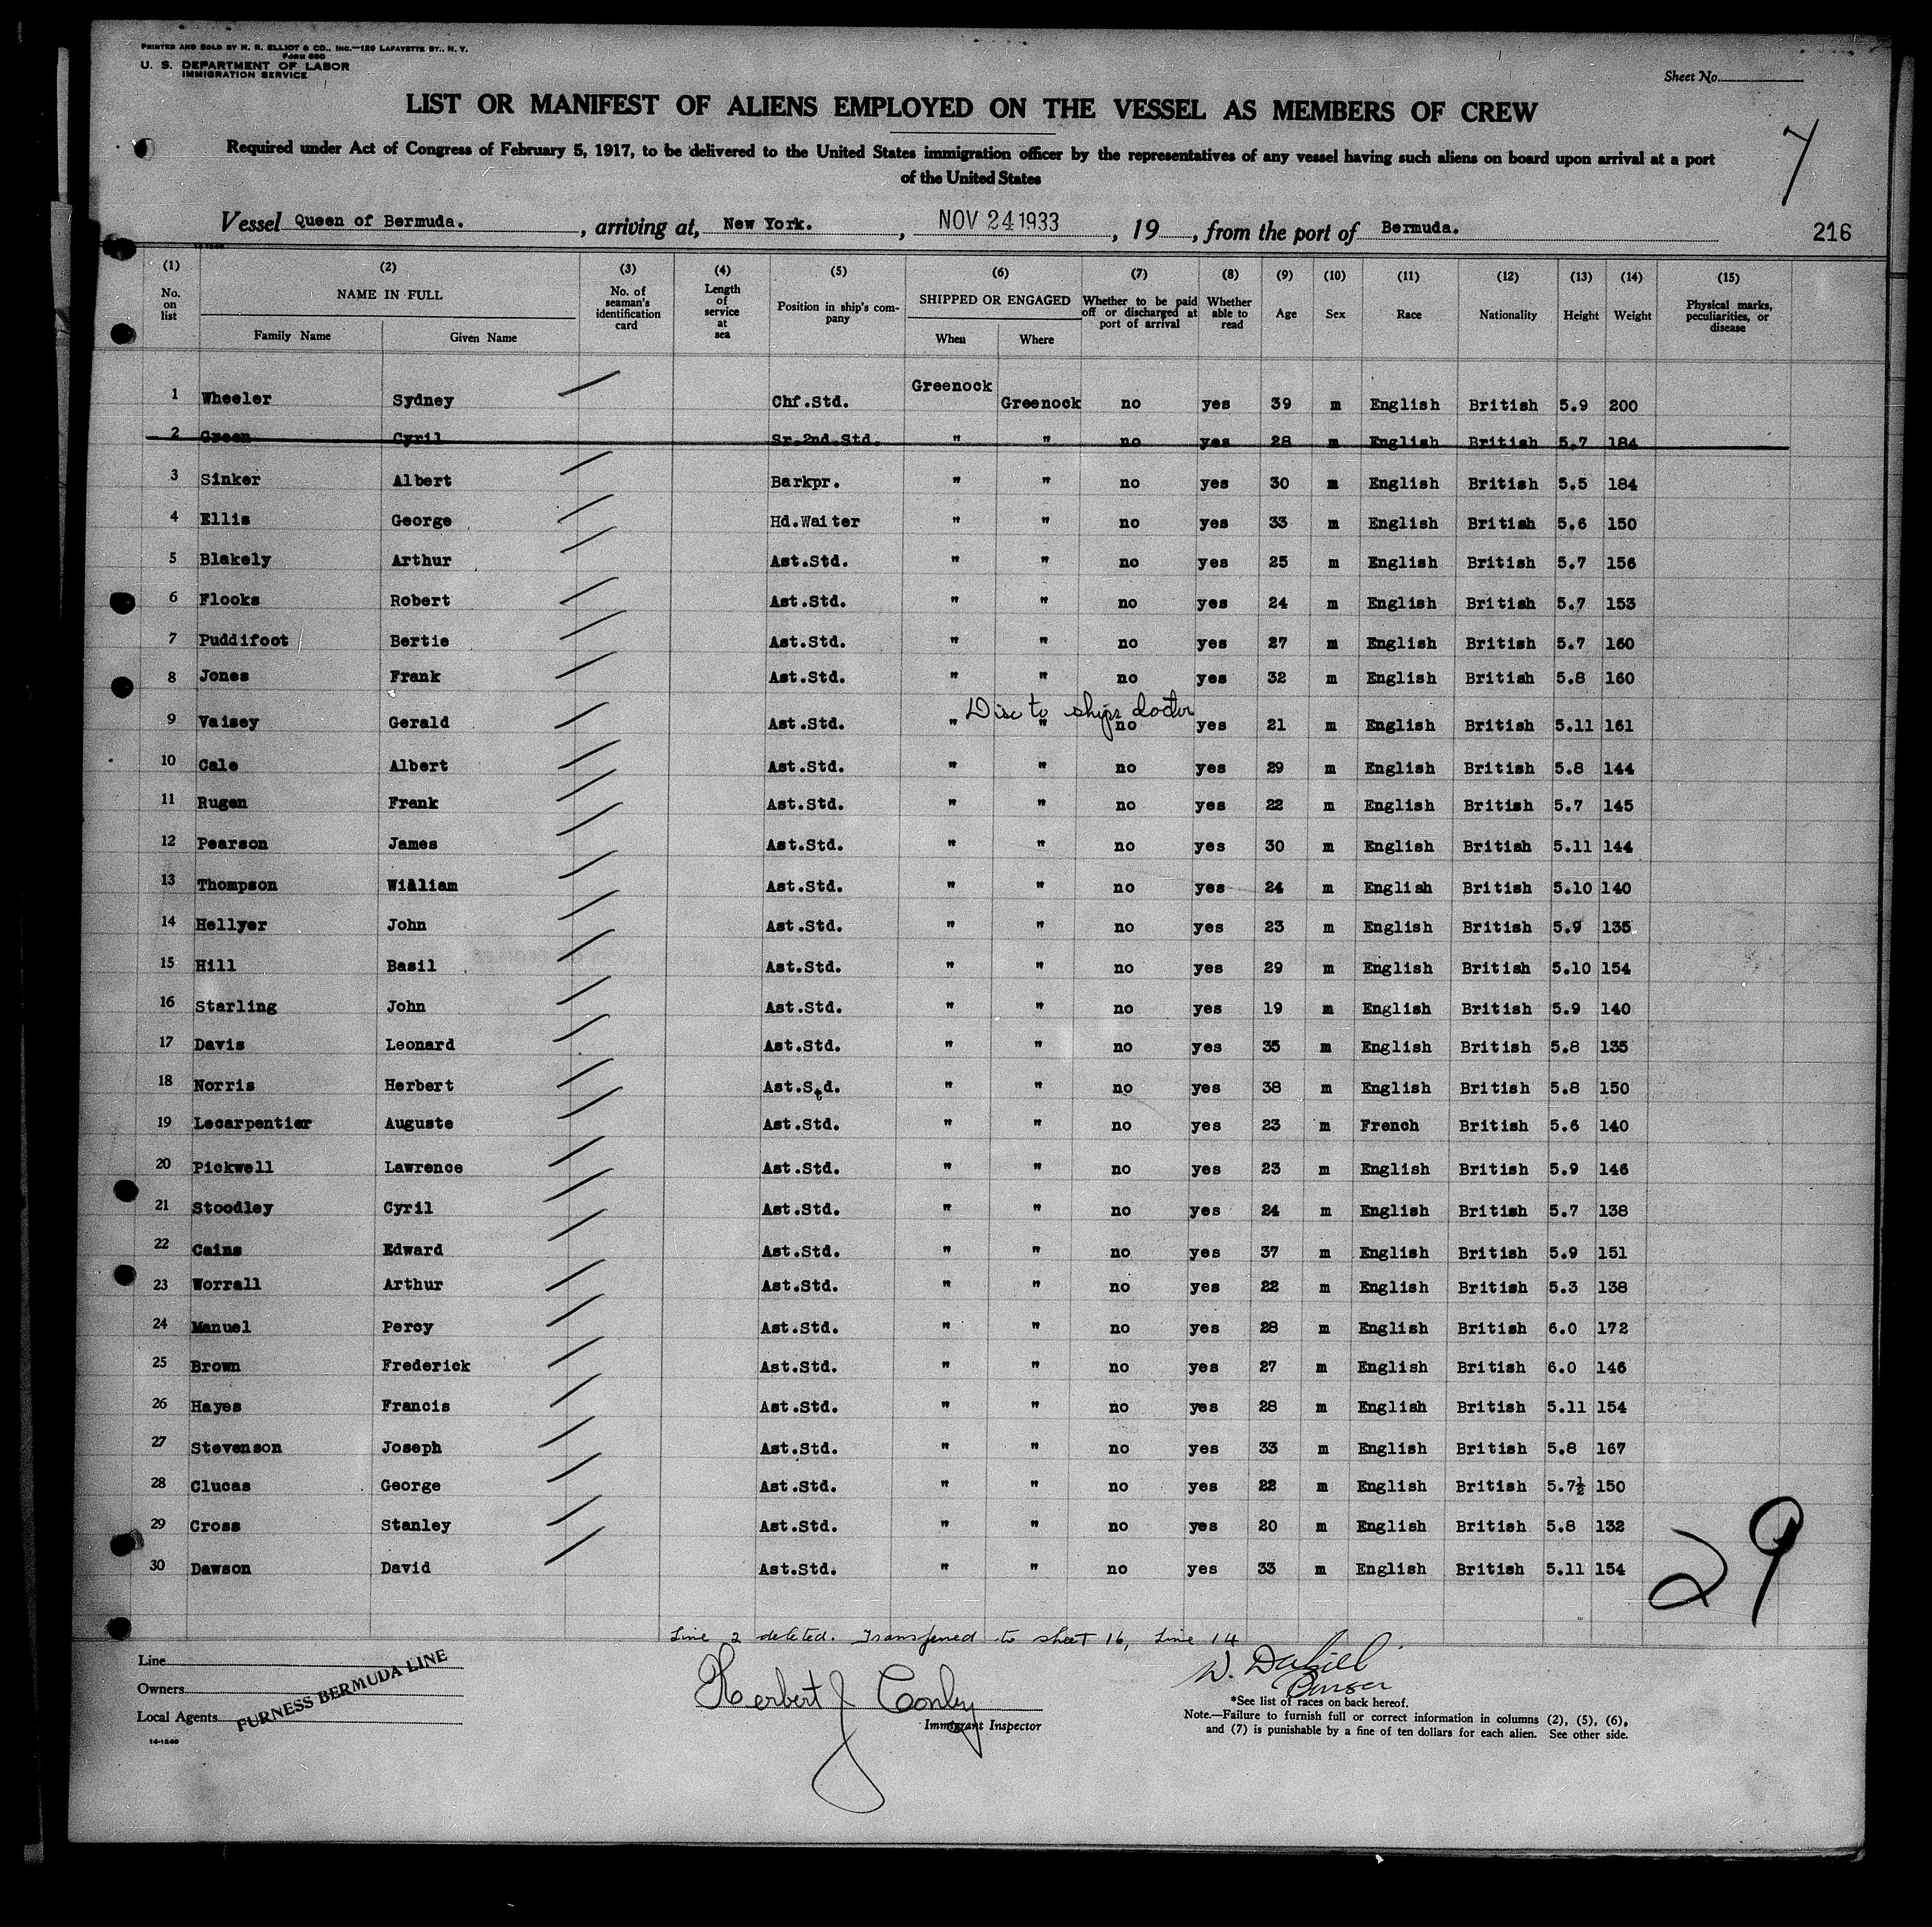 PRINTED AND SOLD BY M. R. ELLIOT & CO., INC.—129 LAFAYETTE ST., N. Y.
FORM 680
U. S. DEPARTMENT OF LABOR
IMMIGRATION SERVICE
Sheet No.
LIST OR MANIFEST OF ALIENS EMPLOYED ON THE VESSEL AS MEMBERS OF CREW
7
Required under Act of Congress of February 5, 1917, to be delivered to the United States immigration officer by the representatives of any vessel having such aliens on board upon arrival at a port
of the United States
Vessel Queen of Bermuda. , arriving at, New York. , NOV 24 1933 , 19 , from the port of Bermuda. 216
(1) (2) (3) (4) (5) (6) (7) (8) (9) (10) (11) (12) (13) (14) (15)
No. on list NAME IN FULL Family Name Given Name No. of seaman's identification card Length of service at sea Position in ship's company SHIPPED OR ENGAGED When Where Whether to be paid off or discharged at port of arrival Whether able to read Age Sex Race Nationality Height Weight Physical marks, peculiarities, or disease
1 Wheeler Sydney Chf.Std. Greenock Greenock no yes 39 m English British 5.9 200
2 Green Cyril Sr.2nd.Std. " " no yes 28 m English British 5.7 184
3 Sinker Albert Barkpr. " " no yes 30 m English British 5.5 184
4 Ellis George Hd.Waiter " " no yes 33 m English British 5.6 150
5 Blakely Arthur Ast.Std. " " no yes 25 m English British 5.7 156
6 Flooks Robert Ast.Std. " " no yes 24 m English British 5.7 153
7 Puddifoot Bertie Ast.Std. " " no yes 27 m English British 5.7 160
8 Jones Frank Ast.Std. " " no yes 32 m English British 5.8 160
Disc to ships doctor
9 Vaisey Gerald Ast.Std. " " no yes 21 m English British 5.11 161
10 Cale Albert Ast.Std. " " no yes 29 m English British 5.8 144
11 Rugen Frank Ast.Std. " " no yes 22 m English British 5.7 145
12 Pearson James Ast.Std. " " no yes 30 m English British 5.11 144
13 Thompson William Ast.Std. " " no yes 24 m English British 5.10 140
14 Hellyer John Ast.Std. " " no yes 23 m English British 5.9 135
15 Hill Basil Ast.Std. " " no yes 29 m English British 5.10 154
16 Starling John Ast.Std. " " no yes 19 m English British 5.9 140
17 Davis Leonard Ast.Std. " " no yes 35 m English British 5.8 135
18 Norris Herbert Ast.Std. " " no yes 38 m English British 5.8 150
19 Lecarpentier Auguste Ast.Std. " " no yes 23 m French British 5.6 140
20 Pickwell Lawrence Ast.Std. " " no yes 23 m English British 5.9 146
21 Stoodley Cyril Ast.Std. " " no yes 24 m English British 5.7 138
22 Cains Edward Ast.Std. " " no yes 37 m English British 5.9 151
23 Worrall Arthur Ast.Std. " " no yes 22 m English British 5.3 138
24 Manuel Percy Ast.Std. " " no yes 28 m English British 6.0 172
25 Brown Frederick Ast.Std. " " no yes 27 m English British 6.0 146
26 Hayes Francis Ast.Std. " " no yes 28 m English British 5.11 154
27 Stevenson Joseph Ast.Std. " " no yes 33 m English British 5.8 167
28 Clucas George Ast.Std. " " no yes 22 m English British 5.7½ 150
29 Cross Stanley Ast.Std. " " no yes 20 m English British 5.8 132
30 Dawson David Ast.Std. " " no yes 33 m English British 5.11 154
29
Line 2 deleted. Transferred to sheet 16, Line 14
Line
Owners
Local Agents
FURNESS BERMUDA LINE
14-1240
Herbert J Conley
Immigrant Inspector
W.
Purser
*See list of races on back hereof.
Note.—Failure to furnish full or correct information in columns (2), (5), (6),
and (7) is punishable by a fine of ten dollars for each alien. See other side.